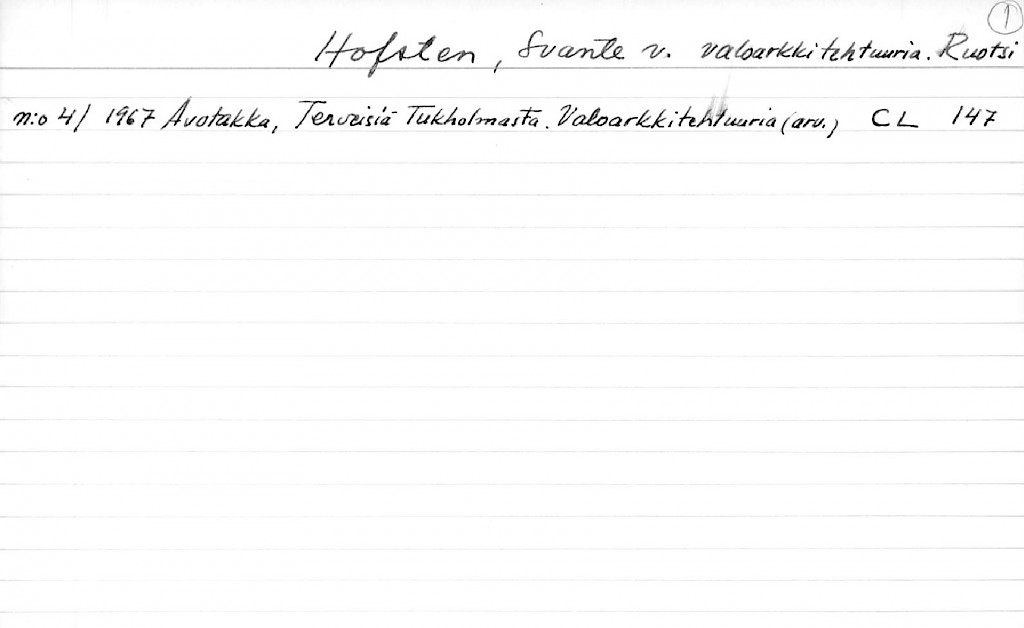 1
Hofsten, Svante v. valoarkkitehtuuria. Ruotsi
n:o 4/ 1967 Avotakka, Terveisiä Tukholmasta. Valoarkkitehtuuria (arv.) CL 147